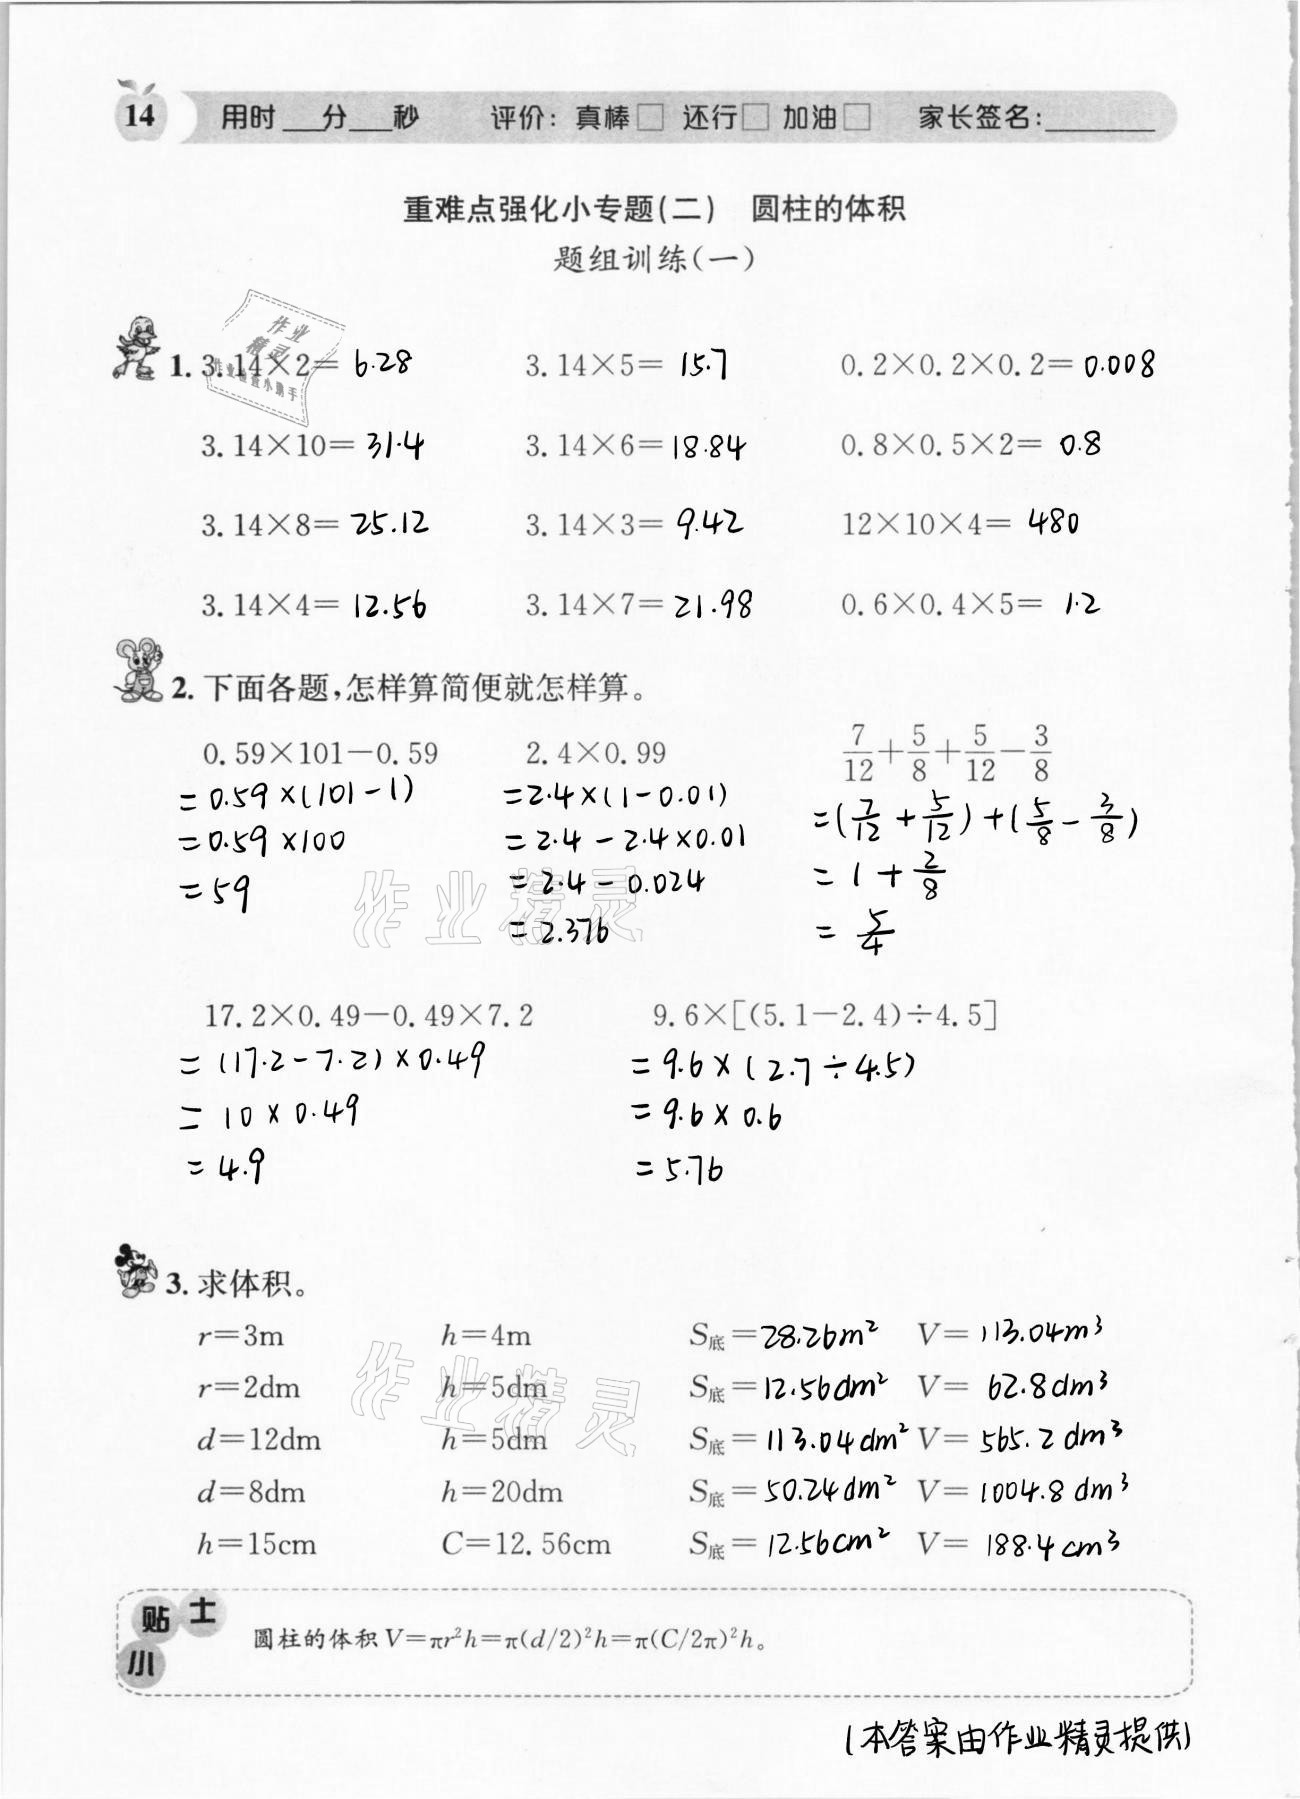 14 用时___分___秒 评价：真棒□ 还行□ 加油□ 家长签名：________
重难点强化小专题(二) 圆柱的体积
题组训练(一)
作业
精灵
作业检查小助手
1. 3.14×2= 6.28 3.14×5= 15.7 0.2×0.2×0.2= 0.008
3.14×10= 31.4 3.14×6= 18.84 0.8×0.5×2= 0.8
3.14×8= 25.12 3.14×3= 9.42 12×10×4= 480
3.14×4= 12.56 3.14×7= 21.98 0.6×0.4×5= 1.2
2. 下面各题，怎样算简便就怎样算。
0.59×101-0.59 2.4×0.99 7/12+5/8+5/12-3/8
=0.59×(101-1) =2.4×(1-0.01) =(7/12+5/12)+(5/8-3/8)
=0.59×100 =2.4-2.4×0.01 =1+2/8
=59 =2.4-0.024 =5/4
=2.376
作业精灵
17.2×0.49-0.49×7.2 9.6×[(5.1-2.4)÷4.5]
=(17.2-7.2)×0.49 =9.6×(2.7÷4.5)
=10×0.49 =9.6×0.6
=4.9 =5.76
3. 求体积。
r=3m h=4m S底=28.26m² V=113.04m³
r=2dm h=5dm S底=12.56dm² V=62.8dm³
作业精灵
d=12dm h=5dm S底=113.04dm² V=565.2dm³
d=8dm h=20dm S底=50.24dm² V=1004.8dm³
h=15cm C=12.56cm S底=12.56cm² V=188.4cm³
小贴士
圆柱的体积V=πr²h=π(d/2)²h=π(C/2π)²h。
(本答案由作业精灵提供)